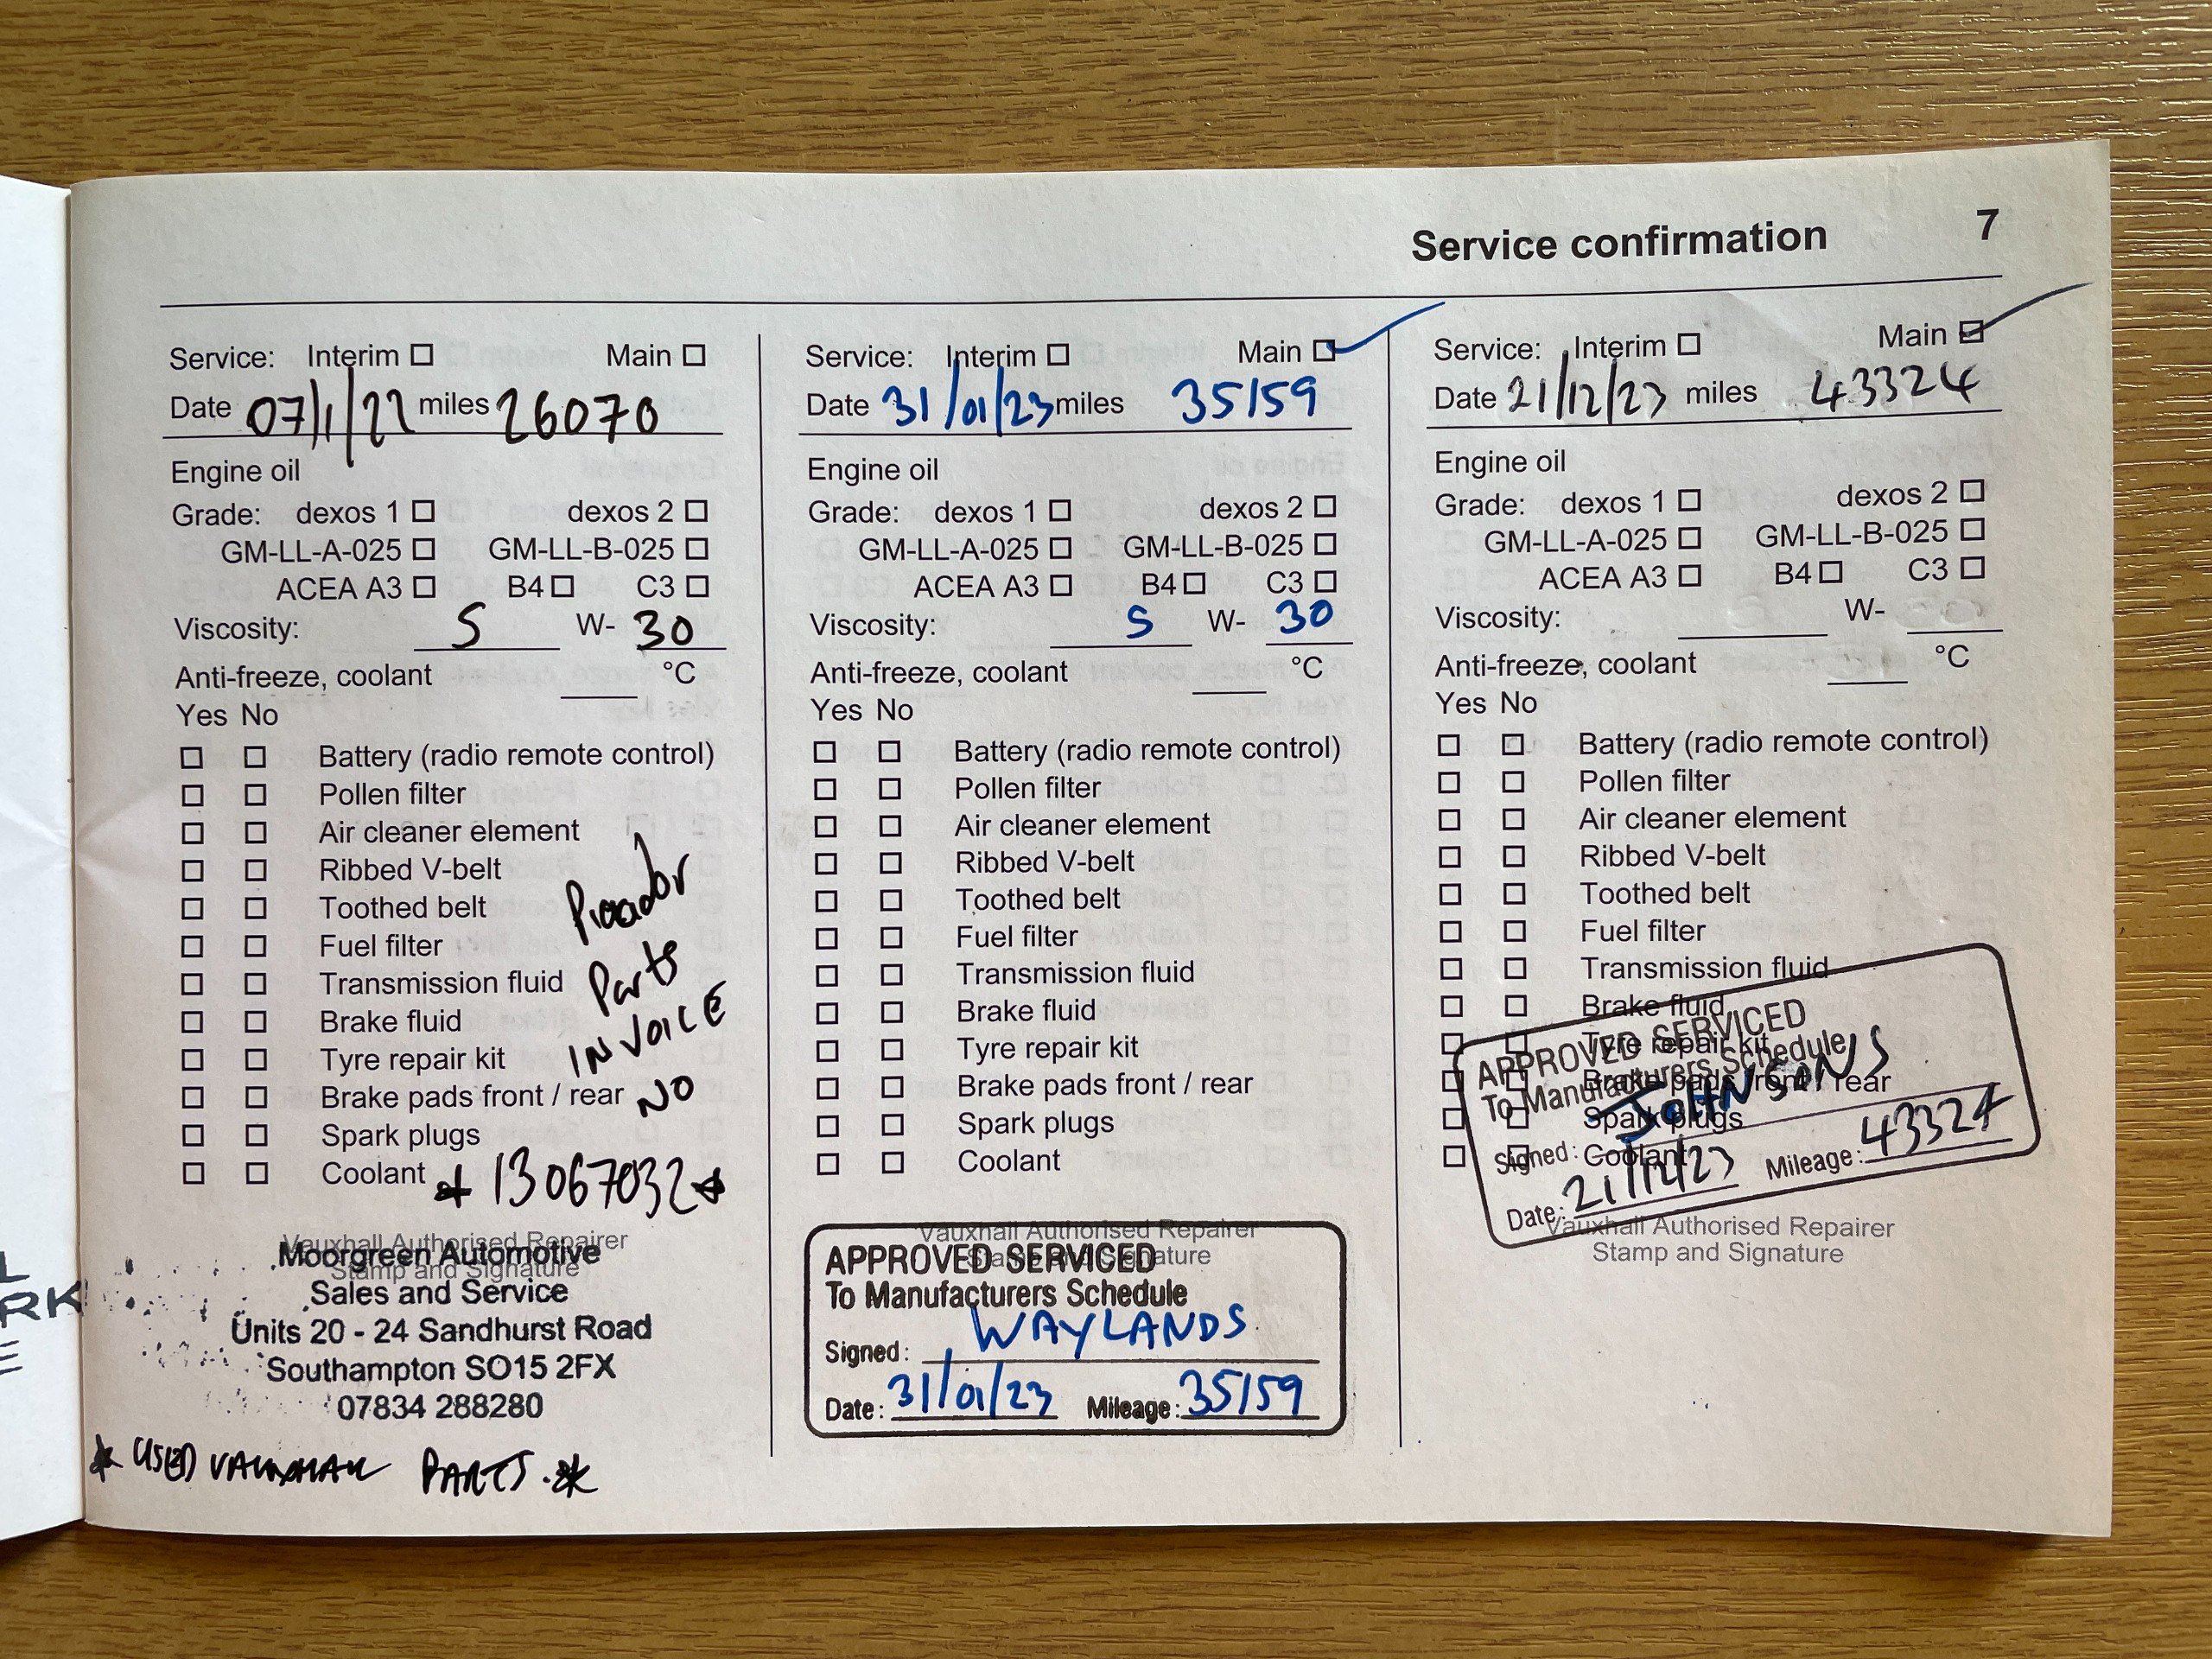 Service confirmation 7
Service: Interim Main
Date 07/1/22 miles 26070
Engine oil
Grade: dexos 1 dexos 2
GM-LL-A-025 GM-LL-B-025
ACEA A3 B4 C3
Viscosity: 5 W- 30
Anti-freeze, coolant °C
Yes No
Battery (radio remote control)
Pollen filter
Air cleaner element
Ribbed V-belt
Toothed belt
Fuel filter
Transmission fluid
Brake fluid
Tyre repair kit
Brake pads front / rear
Spark plugs
Coolant
Picador
Parts
INVOICE
NO
* 13067032 *
Vauxhall Authorised Repairer
Stamp and Signature
Moorgreen Automotive
Sales and Service
Units 20 - 24 Sandhurst Road
Southampton SO15 2FX
07834 288280
* USED VAUXHALL PARTS. *
Service: Interim Main
Date 31/01/23 miles 35159
Engine oil
Grade: dexos 1 dexos 2
GM-LL-A-025 GM-LL-B-025
ACEA A3 B4 C3
Viscosity: 5 W- 30
Anti-freeze, coolant °C
Yes No
Battery (radio remote control)
Pollen filter
Air cleaner element
Ribbed V-belt
Toothed belt
Fuel filter
Transmission fluid
Brake fluid
Tyre repair kit
Brake pads front / rear
Spark plugs
Coolant
Vauxhall Authorised Repairer
Stamp and Signature
APPROVED SERVICED
To Manufacturers Schedule
Signed: WAYLANDS
Date: 31/01/23 Mileage: 35159
Service: Interim Main
Date 21/12/23 miles 43324
Engine oil
Grade: dexos 1 dexos 2
GM-LL-A-025 GM-LL-B-025
ACEA A3 B4 C3
Viscosity: W-
Anti-freeze, coolant °C
Yes No
Battery (radio remote control)
Pollen filter
Air cleaner element
Ribbed V-belt
Toothed belt
Fuel filter
Transmission fluid
Brake fluid
Tyre repair kit
Brake pads front / rear
Spark plugs
Coolant
APPROVED SERVICED
To Manufacturers Schedule
Signed: JOHNSONS
Date: 21/12/23 Mileage: 43324
Vauxhall Authorised Repairer
Stamp and Signature